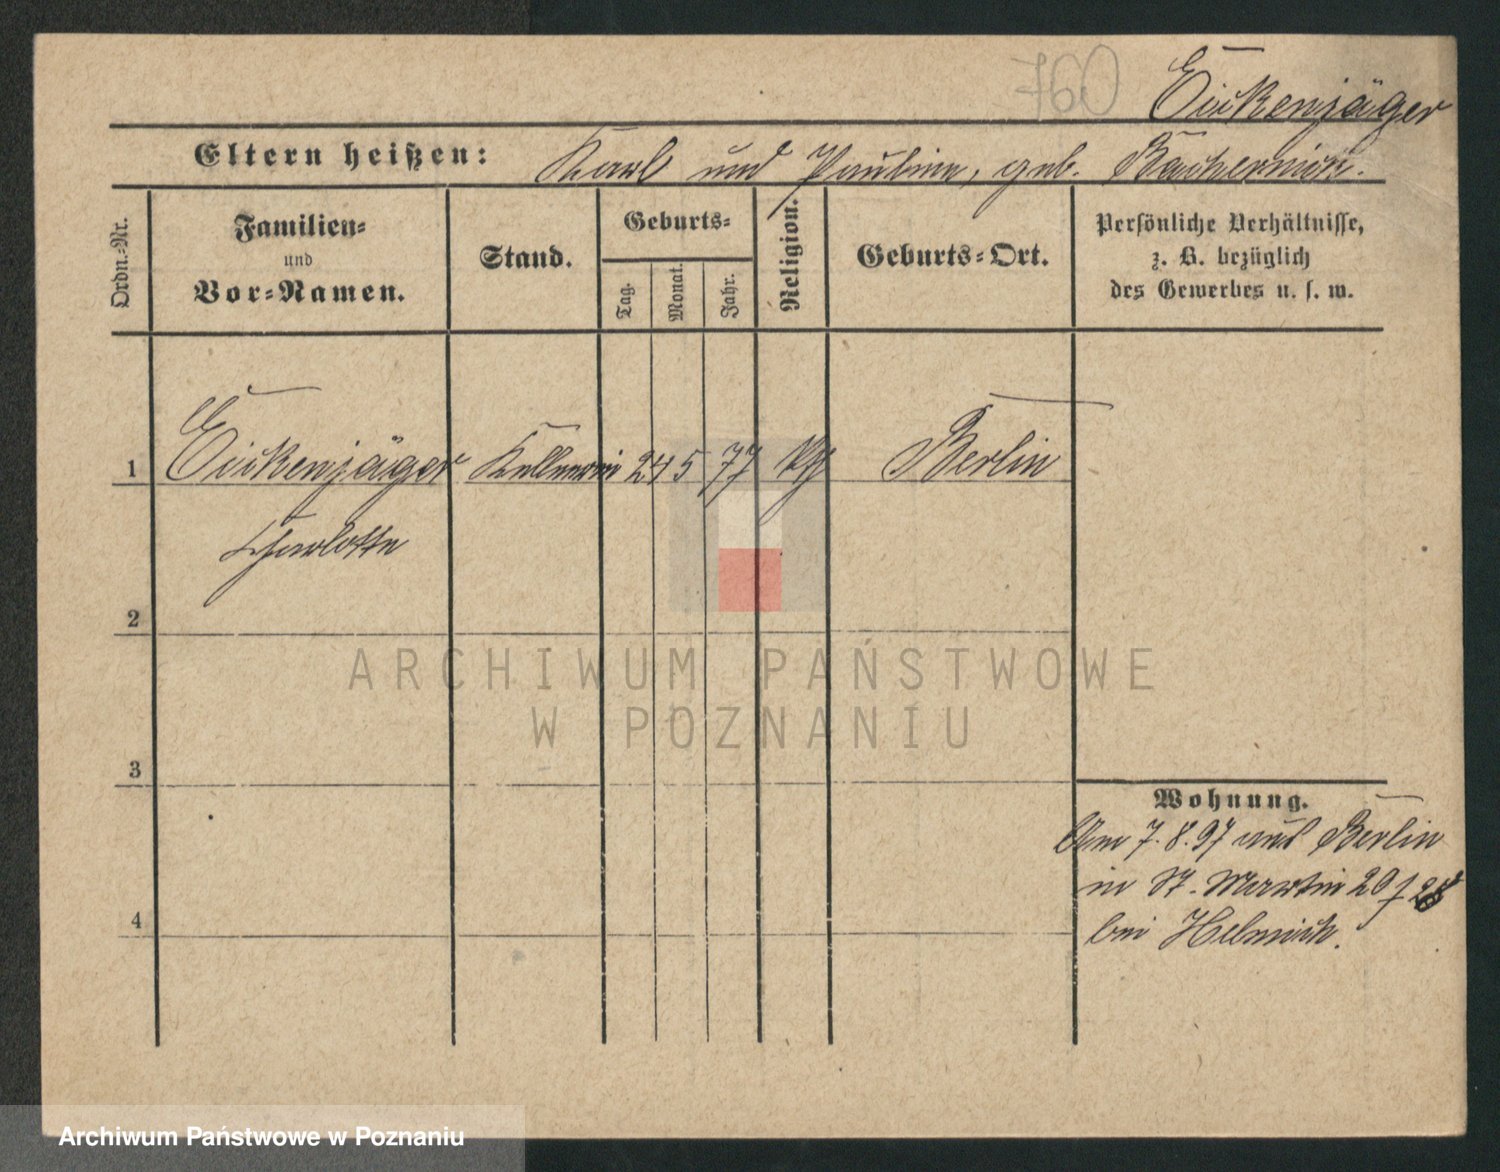 760
Eickenjäger
Eltern heißen: Karl und Pauline, geb.
Ordn.-Nr.
Familien-
und
Vor-Namen.
Stand.
Geburts-
Tag.
Monat.
Jahr.
Religion.
Geburts-Ort.
Persönliche Verhältnisse,
z. B. bezüglich
des Gewerbes u. s. w.
1 Eickenjäger Kellnerin 24 5 77 Berlin
Charlotte
2
3
4
ARCHIWUM PAŃSTWOWE
W POZNANIU
Wohnung.
Am 7.8.97 aus Berlin
in St. Martin 20
bei Helmich.
Archiwum Państwowe w Poznaniu